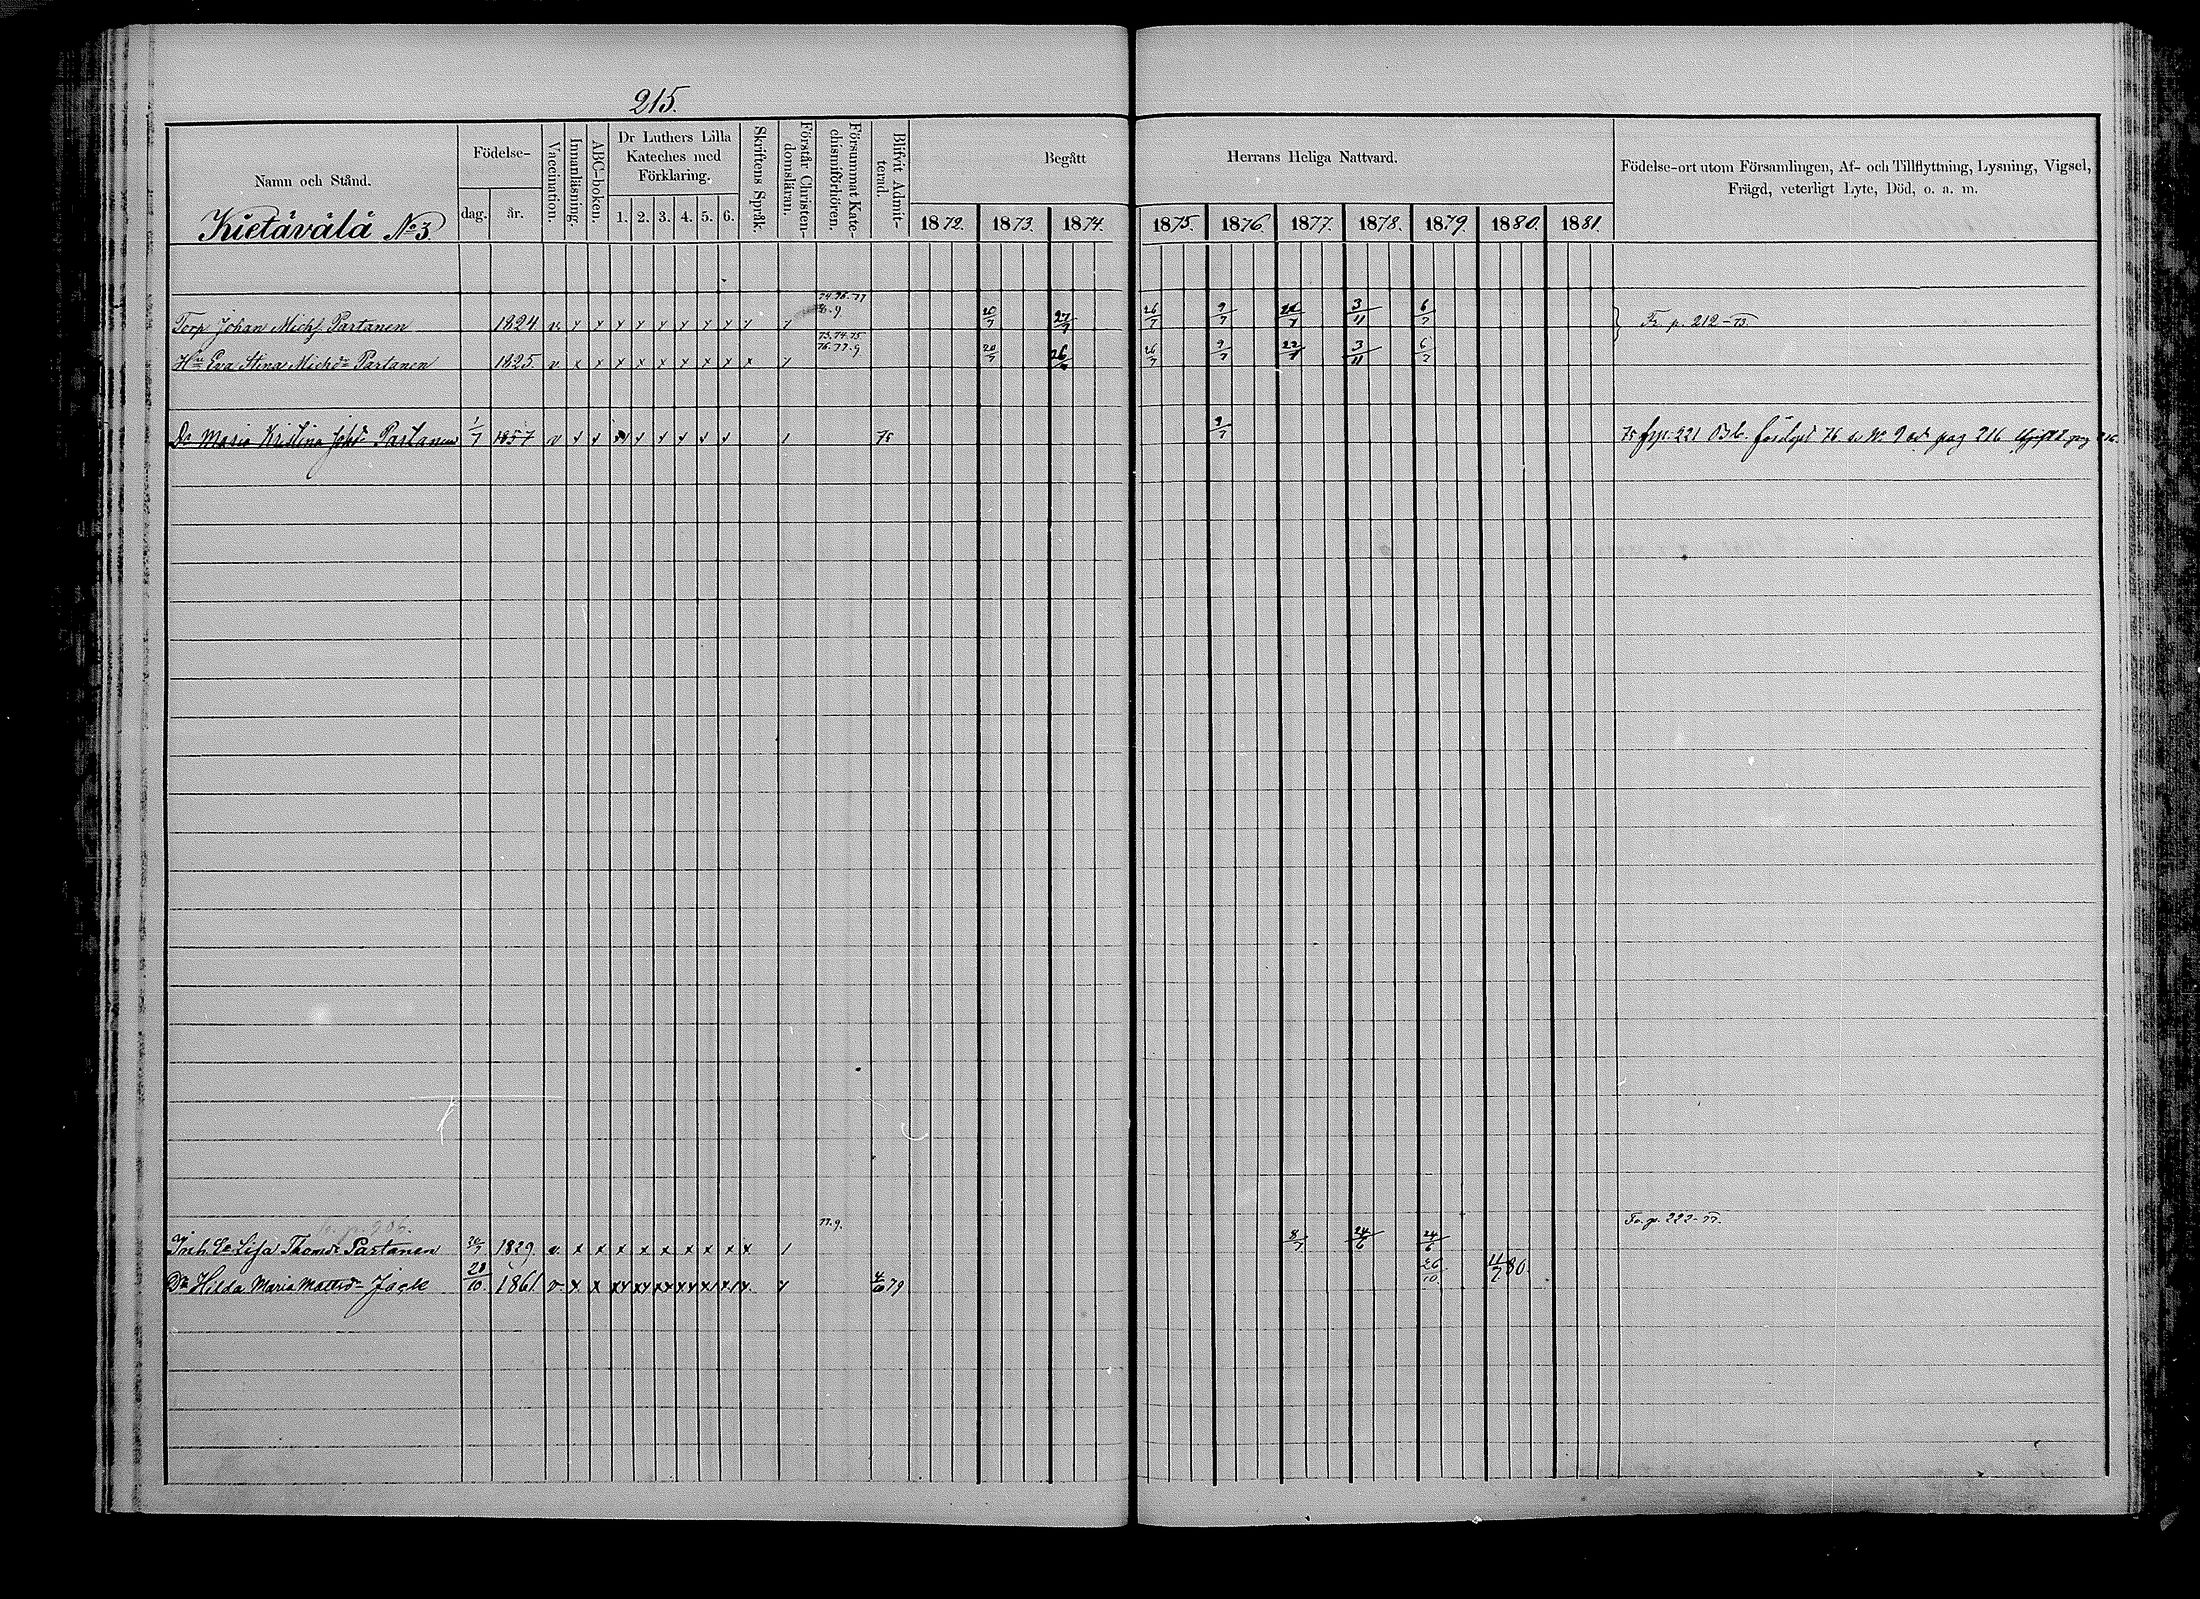 215.
Namn och Stånd.
Födelse-
dag.
år.
Vaccination.
Innanläsning.
ABC-boken.
Dr Luthers Lilla Kateches med Förklaring.
1. 2. 3. 4. 5. 6.
Skriftens Språk.
Förstår Christendomsläran.
Försummat Katechismiförhören.
Blifvit Admitterad.
Begått Herrans Heliga Nattvard.
1872. 1873. 1874. 1875. 1876. 1877. 1878. 1879. 1880. 1881.
Födelse-ort utom Församlingen, Af- och Tillflyttning, Lysning, Vigsel,
Frägd, veterligt Lyte, Död, o. a. m.
Kietävälä No 3.
74.76.77
Torp Johan Mich Partanen 1824 v x x x x x x x x x 20/7 27/7 26/7 9/7 22/7 3/11 6/7 Fr. p. 212-73.
73.74.75
76.77.9
Hu Eva Stina Michdr Partanen 1825. v x x x x x x x x x 20/7 26/7 9/7 22/7 3/11 6/7
Dr Maria Kristina Johdr Partanen 1/7 1857 v 75 9/7 75 fr p. 221 76 No 9 pag 216
p. 206.
77.9. Fr. p. 222-77.
Inh E Lisa Thomdr Partanen 20/7 1829. v x x x x x x x x x 8/7 24/6 24/6
Dr Hilda Maria Mattsdr Jäck 28/10. 1861. v x x 79 26/10. 11/7 80.